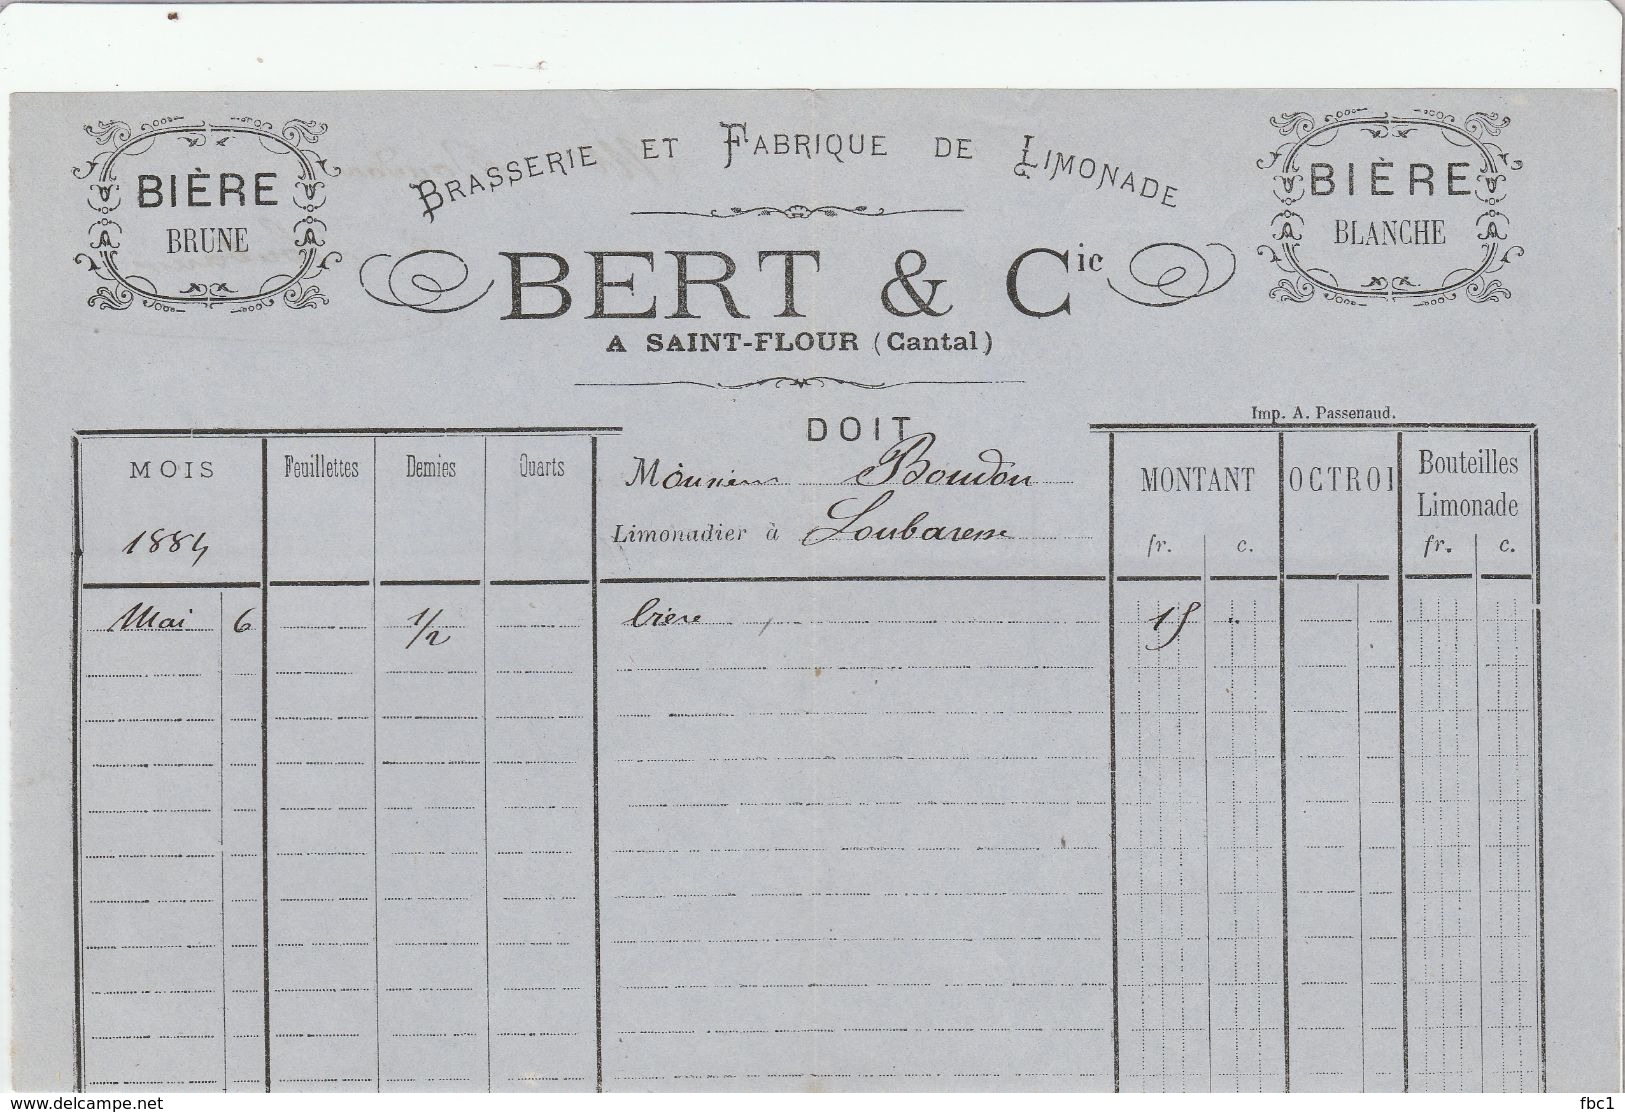 BIÈRE
BRUNE
BRASSERIE ET FABRIQUE DE LIMONADE
BIÈRE
BLANCHE
BERT & Cie
A SAINT-FLOUR (Cantal)
Imp. A. Passenaud.
DOIT
MOIS Feuillettes Demies Quarts Monsieur Boudon MONTANT OCTROI Bouteilles Limonade
1884 Limonadier à Loubaresse fr. c. fr. c.
Mai 6 1/2 bière 15 "
www.delcampe.net
fbc1